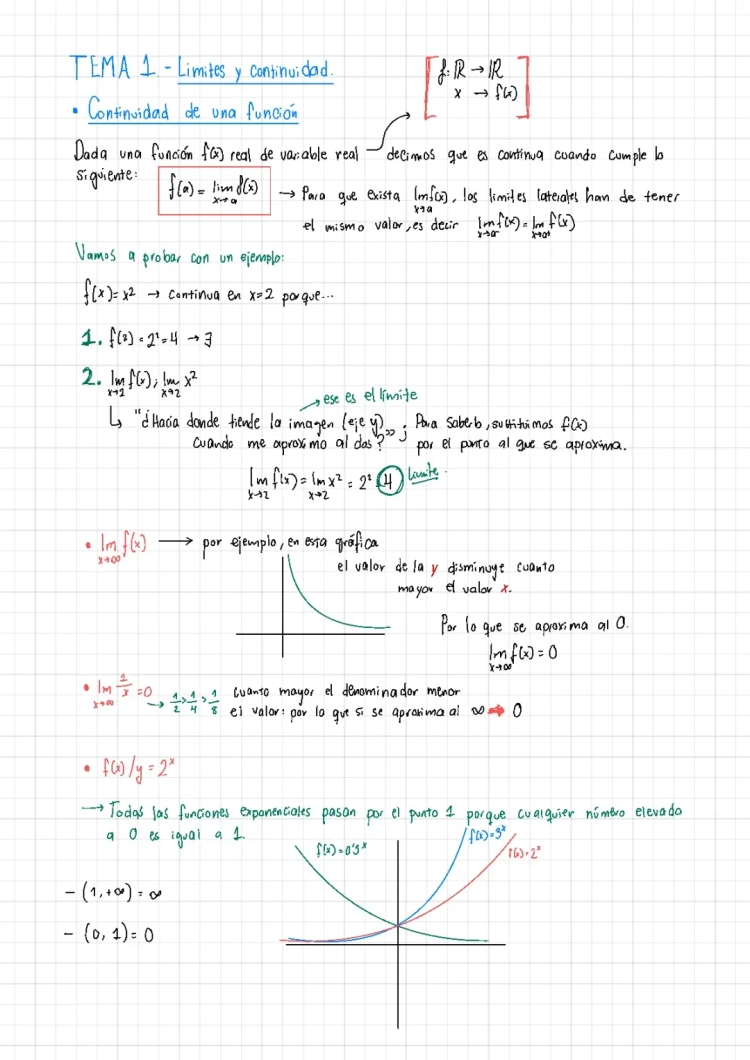 TEMA 1.- Limites y continuidad.
f: ℝ → ℝ
x → f(x)
• Continuidad de una función
Dada una función f(x) real de variable real decimos que es continua cuando cumple lo
siguiente:
f(a) = lim x→a f(x) → Para que exista lim x→a f(x), los limites laterales han de tener
el mismo valor, es decir lim x→a⁻ f(x) = lim x→a⁺ f(x)
Vamos a probar con un ejemplo:
f(x) = x² → Continua en x=2 porque...
1. f(2) = 2² = 4 → ∃
2. lim x→2 f(x); lim x→2 x²
→ ese es el límite
↳ "¿Hacia donde tiende la imagen (eje y) ; Para saberlo, sustituimos f(x)
cuando me aproximo al dos?" por el punto al que se aproxima.
lim x→2 f(x) = lim x→2 x² = 2² 4 Limite.
• lim x→∞ f(x) → por ejemplo, en esta gráfica
el valor de la y disminuye cuanto
mayor el valor x.
Por lo que se aproxima al 0.
lim x→∞ f(x) = 0
• lim x→∞ 1/x = 0 → 1/2 > 1/4 > 1/8 cuanto mayor el denominador menor
el valor: por lo que si se aproxima al ∞ → 0
• f(x)/y = 2ˣ
→ Todas las funciones exponenciales pasan por el punto 1 porque cualquier número elevado
a 0 es igual a 1.
f(x)=0'3ˣ f(x)=3ˣ f(x)=2ˣ
- (1, +∞) = ∞
- (0, 1) = 0